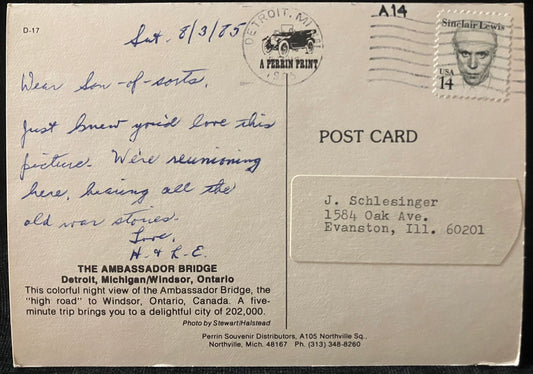 D-17
Sat. 8/3/85
Dear Son-of-sorts,
Just knew you'd love this
picture. We're reunioning
here, hearing all the
old war stories.
Love,
H. & L. E.
THE AMBASSADOR BRIDGE
Detroit, Michigan/Windsor, Ontario
This colorful night view of the Ambassador Bridge, the
"high road" to Windsor, Ontario, Canada. A five-
minute trip brings you to a delightful city of 202,000.
Photo by Stewart/Halstead
DETROIT, MI
A PERRIN PRINT
A14
Sinclair Lewis
USA
14
POST CARD
J. Schlesinger
1584 Oak Ave.
Evanston, Ill. 60201
Perrin Souvenir Distributors, A105 Northville Sq.,
Northville, Mich. 48167 Ph. (313) 348-8260